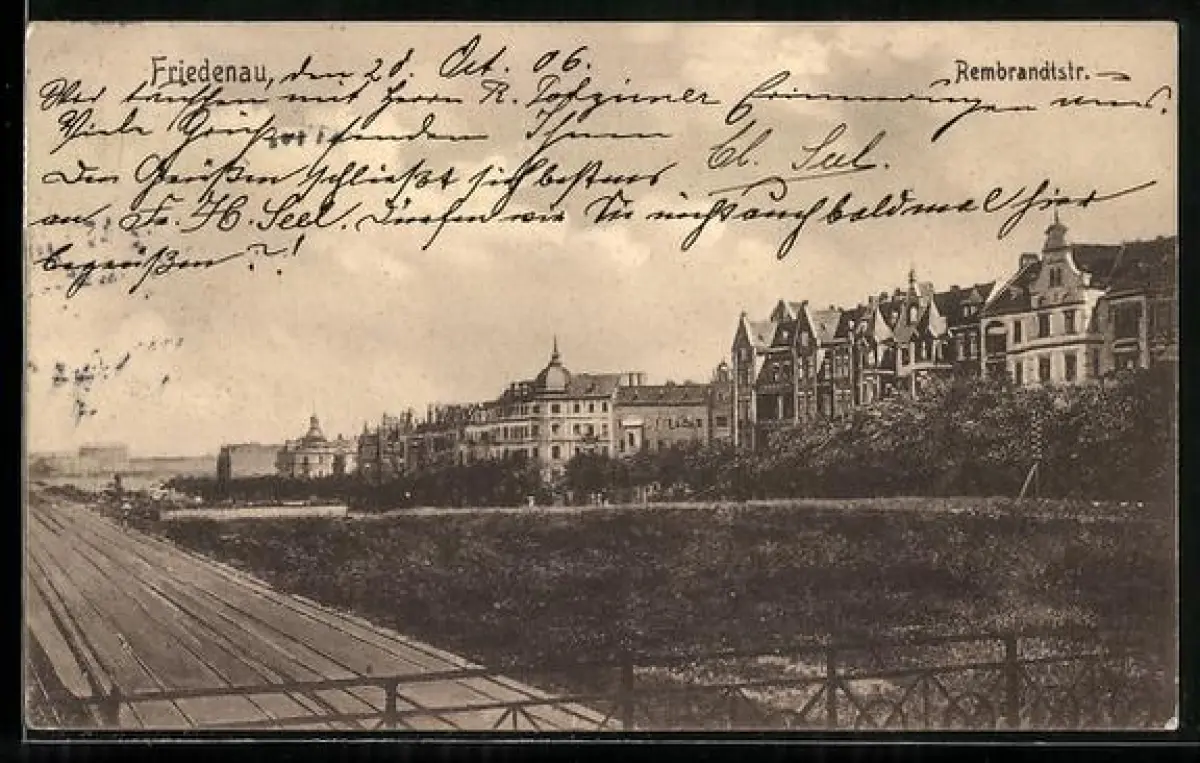 Friedenau, den 28. Oct. 06.
Rembrandtstr.
Wir tauschen mit Herrn R. Erinnerungen aus.
Viele Grüße senden Ihnen
Cl. Seel.
Den Grüßen schließt sich bestens
an Fr. H. Seel. Dürfen wir Sie nicht auch bald mal hier
begrüßen?!